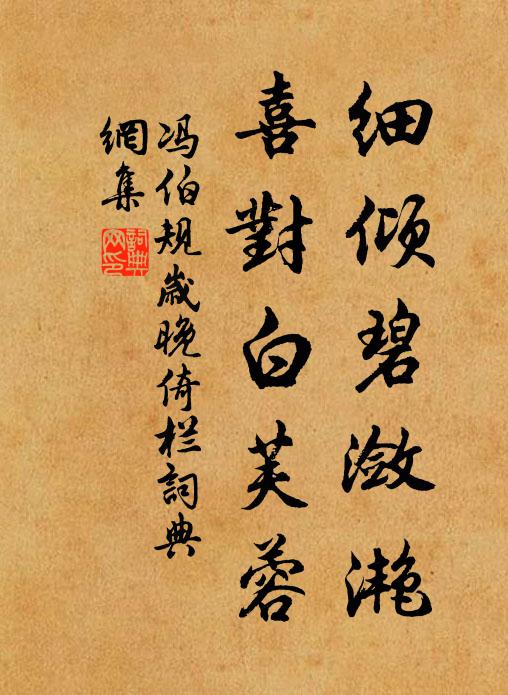 细倾碧潋滟
喜對白芙蓉
冯伯规歲晚倚栏詞典
網集
詞典
网印